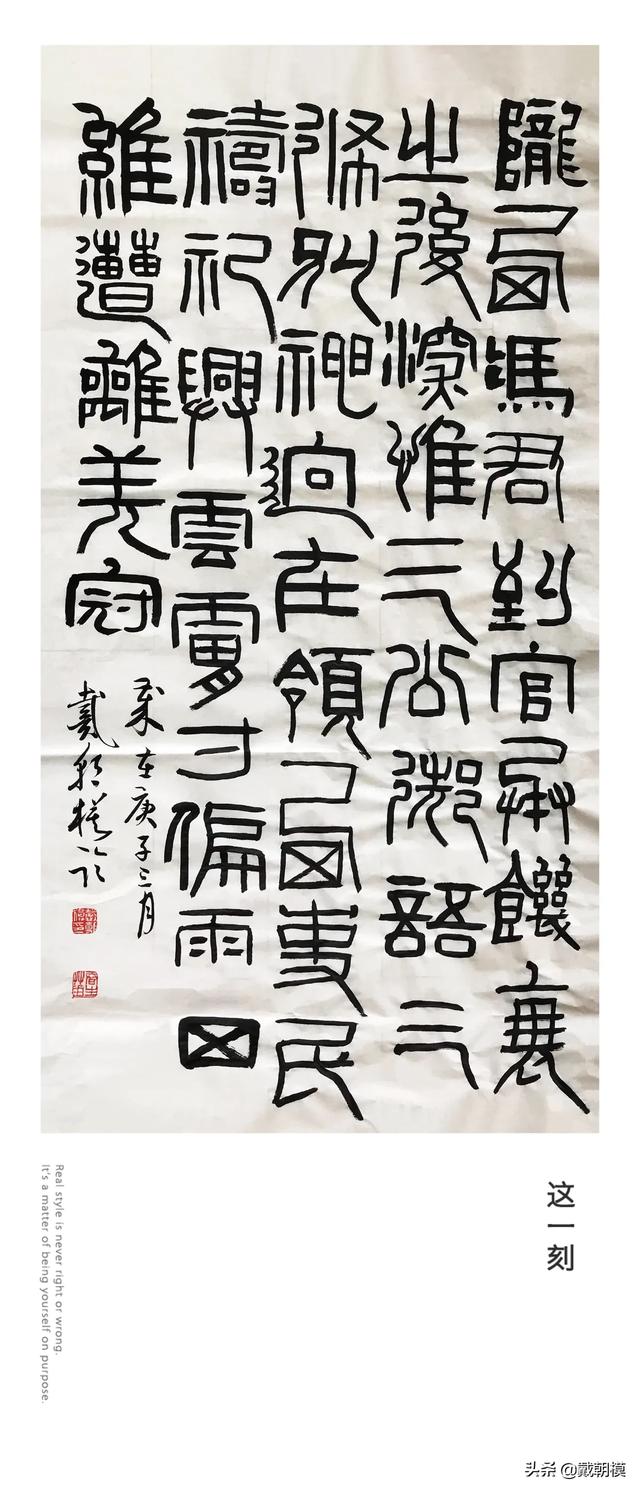 隴西馮君到官承饑衰
之後深惟三公御語三
條別神迥在領西吏民
禱祀興雲膚寸偏雨四
維遭離羌寇
歲在庚子三月
戴朝模临
这一刻
Real style is never right or wrong.
It's a matter of being yourself on purpose.
头条 @戴朝模